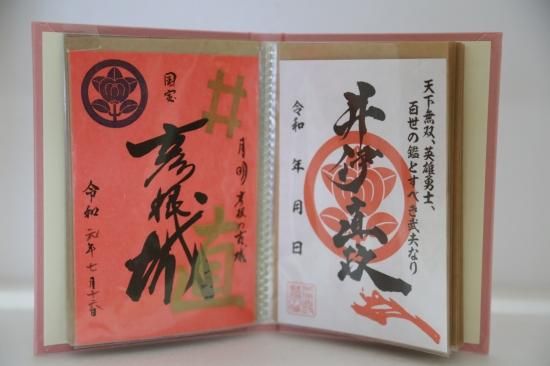 井直
月明 彦根の古城
国宝
彦根城
令和元年七月
天下無双、英雄勇士、
百世の鑑とすべき武夫なり
井伊直政
令和 年 月 日